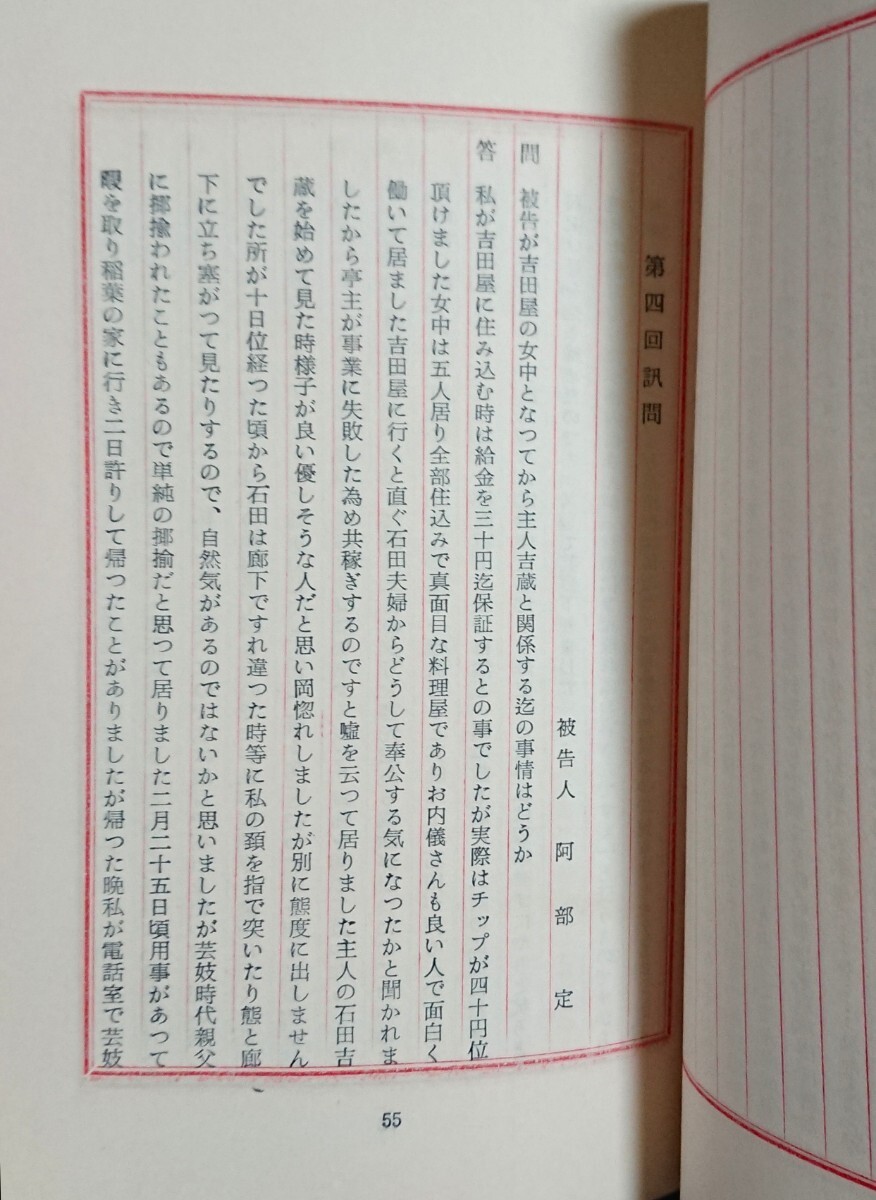 第四回訊問
被告人　阿部定
問　被告が吉田屋の女中となつてから主人吉蔵と関係する迄の事情はどうか
答　私が吉田屋に住み込む時は給金を三十円迄保証するとの事でしたが実際はチップが四十円位
頂けました女中は五人居り全部住込みで真面目な料理屋でありお内儀さんも良い人で面白く
働いて居ました吉田屋に行くと直ぐ石田夫婦からどうして奉公する気になつたかと聞かれま
したから亭主が事業に失敗した為め共稼ぎするのですと嘘を云つて居りました主人の石田吉
蔵を始めて見た時様子が良い優しそうな人だと思い岡惚れしましたが別に態度に出しません
でした所が十日位経つた頃から石田は廊下ですれ違つた時等に私の頚を指で突いたり態と廊
下に立ち塞がつて見たりするので、自然気があるのではないかと思いましたが芸妓時代親父
に揶揄われたこともあるので単純の揶揄だと思つて居りました二月二十五日頃用事があつて
暇を取り稲葉の家に行き二日許りして帰つたことがありましたが帰つた晩私が電話室で芸妓
55